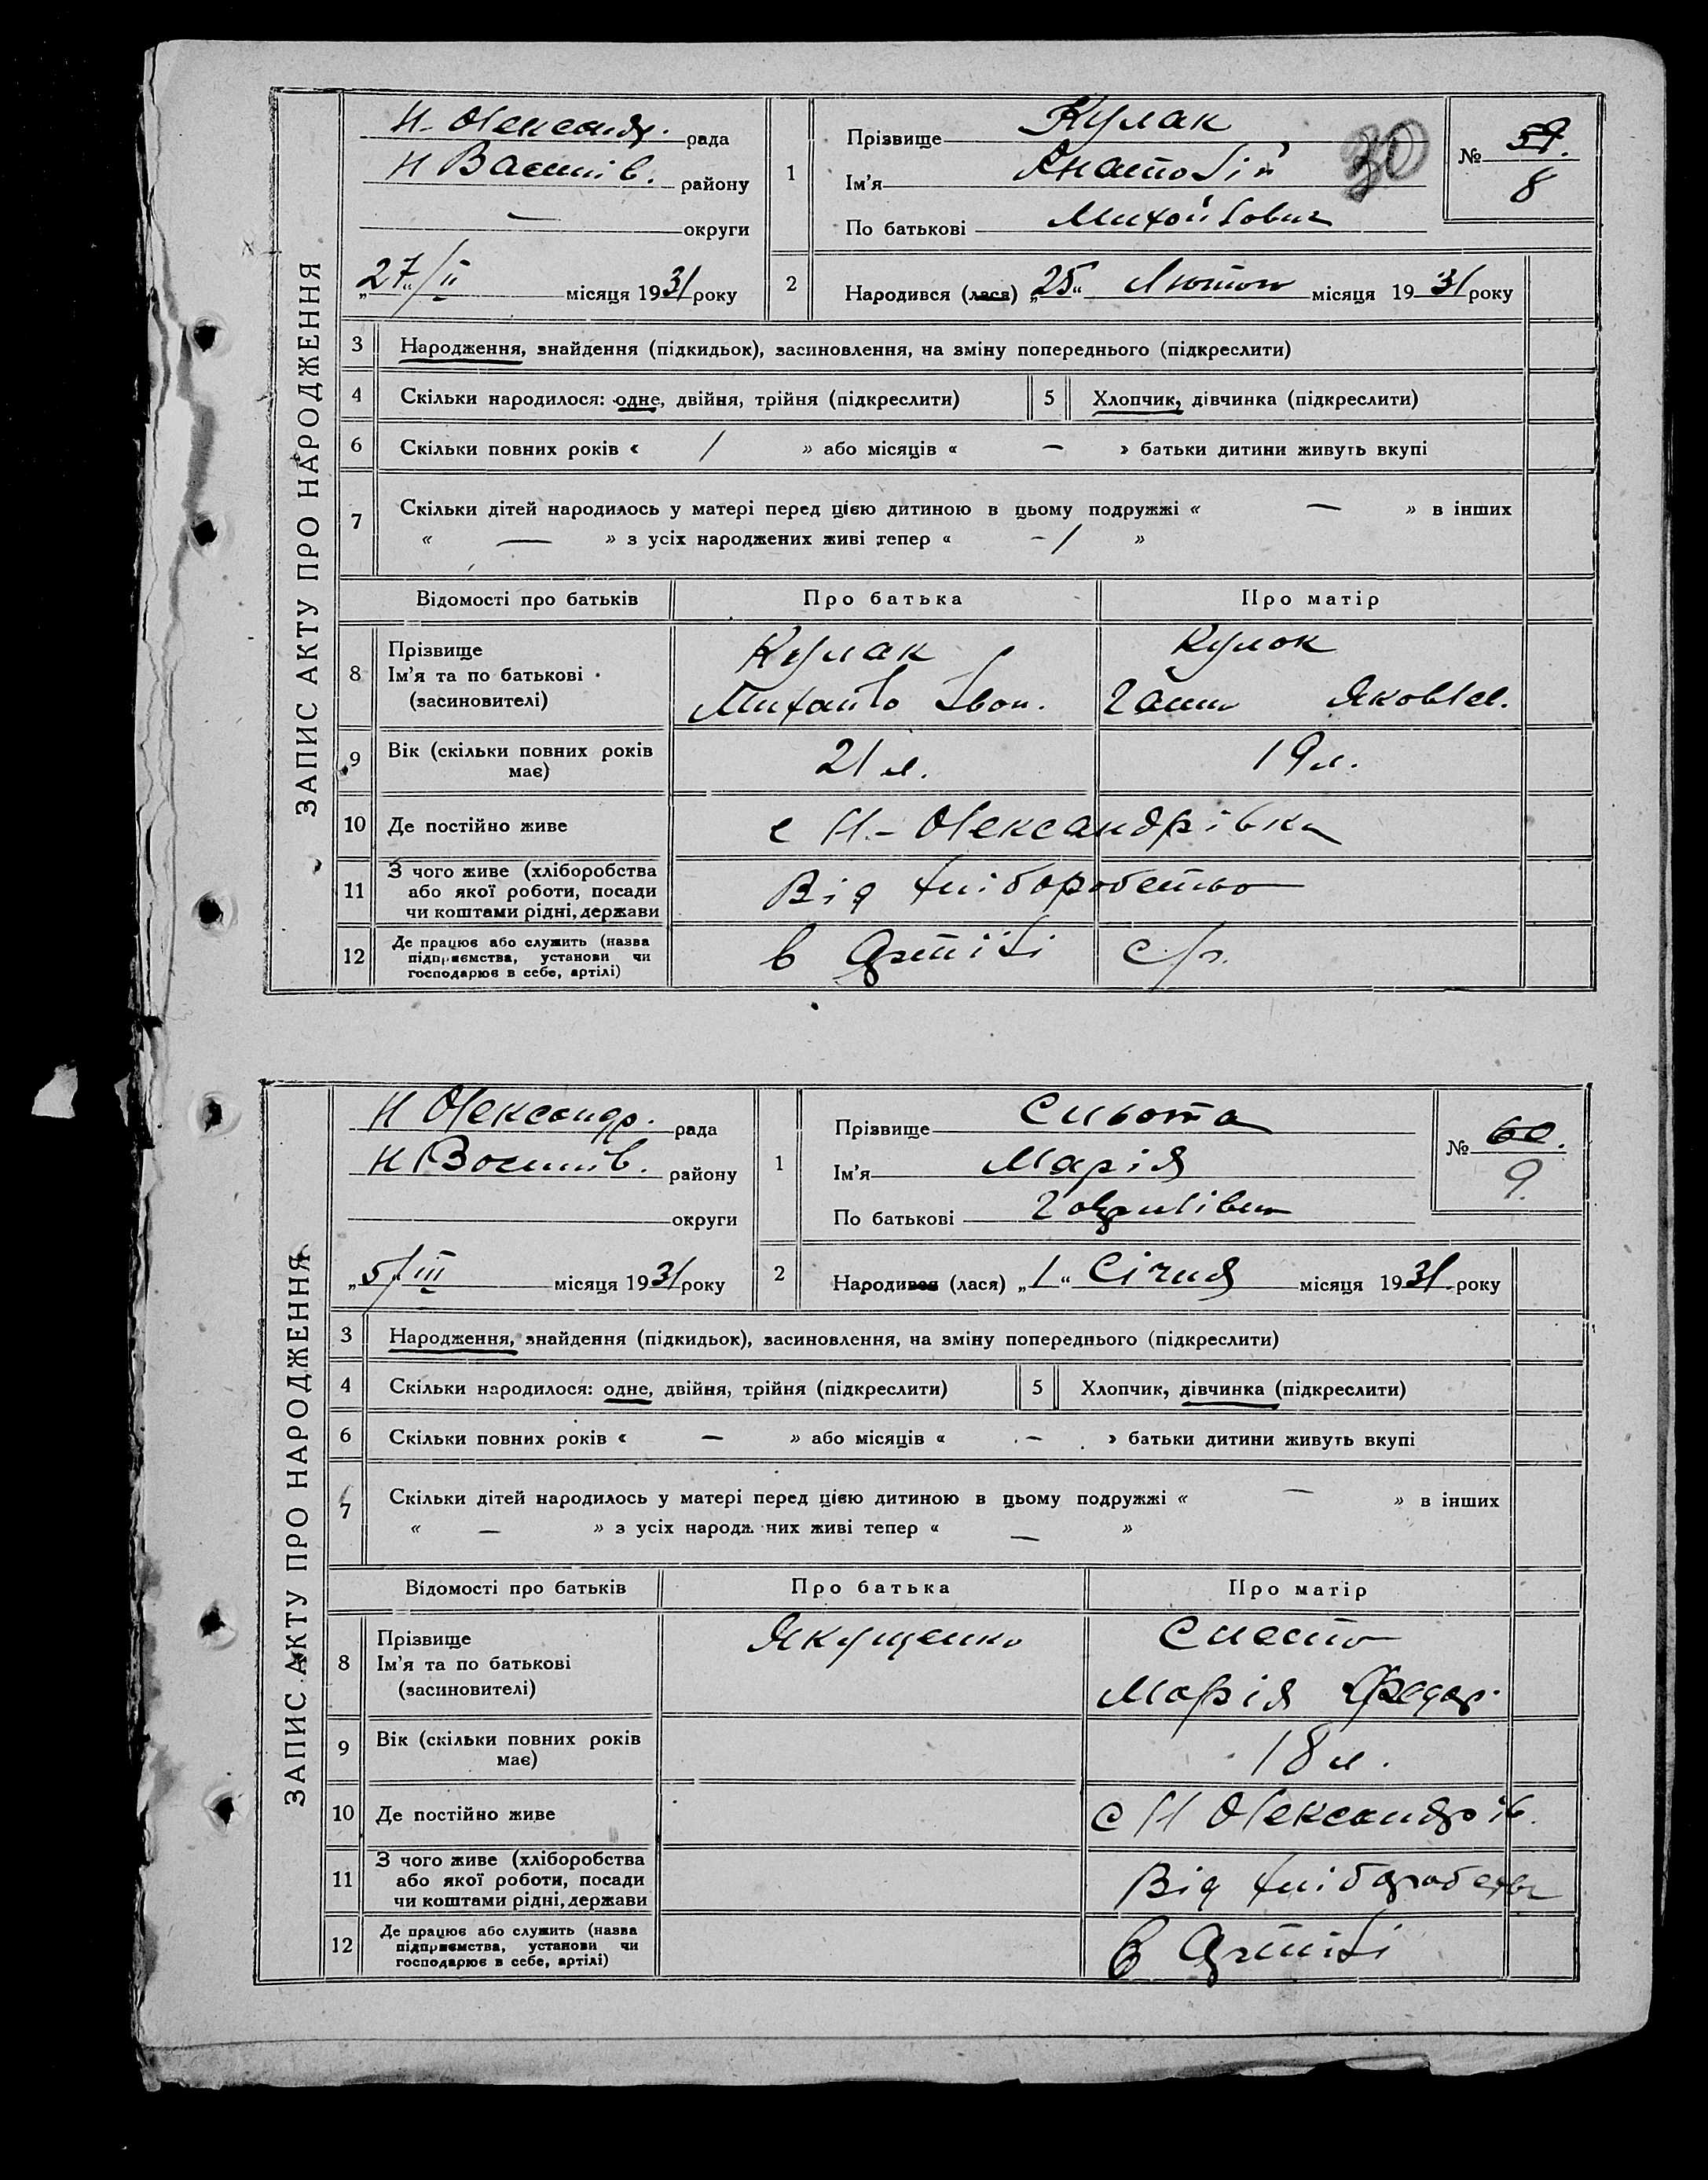 ЗАПИС АКТУ ПРО НАРОДЖЕННЯ
Н-Олександр. рада
Н Василів. району
— округи
„27"/II місяця 1931 року
1
Прізвище Кулак
Ім'я Анатолій
По батькові Михайлович
30
№ 59.
8
2
Народився (лася) „25" Лютого місяця 1931 року
3 Народження, знайдення (підкидьок), засиновлення, на зміну попереднього (підкреслити)
4 Скільки народилося: одне, двійня, трійня (підкреслити)
5 Хлопчик, дівчинка (підкреслити)
6 Скільки повних років « / » або місяців « — » батьки дитини живуть вкупі
7 Скільки дітей народилось у матері перед цією дитиною в цьому подружжі « — » в інших
« — » з усіх народжених живі тепер « -/ »
Відомості про батьків Про батька Про матір
8 Прізвище
Ім'я та по батькові
(засиновителі)
Кулак
Михайло Іван.
Кулак
Ганна Яковлев.
9 Вік (скільки повних років
має)
21 л.
19 л.
10 Де постійно живе
с Н.-Олександрівка
11 З чого живе (хліборобства
або якої роботи, посади
чи коштами рідні, держави
Від хліборобства
12 Де працює або служить (назва
підприємства, установи чи
господарює в себе, артілі)
в Артілі с/г.
ЗАПИС АКТУ ПРО НАРОДЖЕННЯ
Н Олександр. рада
Н Василів. району
округи
„5/III місяця 1931 року
1
Прізвище
Ім'я Марія
По батькові Гаврилівна
№ 60.
9.
2
Народився (лася) „1" Січня місяця 1931 року
3 Народження, знайдення (підкидьок), засиновлення, на зміну попереднього (підкреслити)
4 Скільки народилося: одне, двійня, трійня (підкреслити)
5 Хлопчик, дівчинка (підкреслити)
6 Скільки повних років « — » або місяців « — » батьки дитини живуть вкупі
7 Скільки дітей народилось у матері перед цією дитиною в цьому подружжі « — » в інших
« — » з усіх народжених живі тепер « — »
Відомості про батьків Про батька Про матір
8 Прізвище
Ім'я та по батькові
(засиновителі)
Якущенко
Марія Федор.
9 Вік (скільки повних років
має)
18 л.
10 Де постійно живе
с Н Олександрів.
11 З чого живе (хліборобства
або якої роботи, посади
чи коштами рідні, держави
Від хліборобства
12 Де працює або служить (назва
підприємства, установи чи
господарює в себе, артілі)
в Артілі